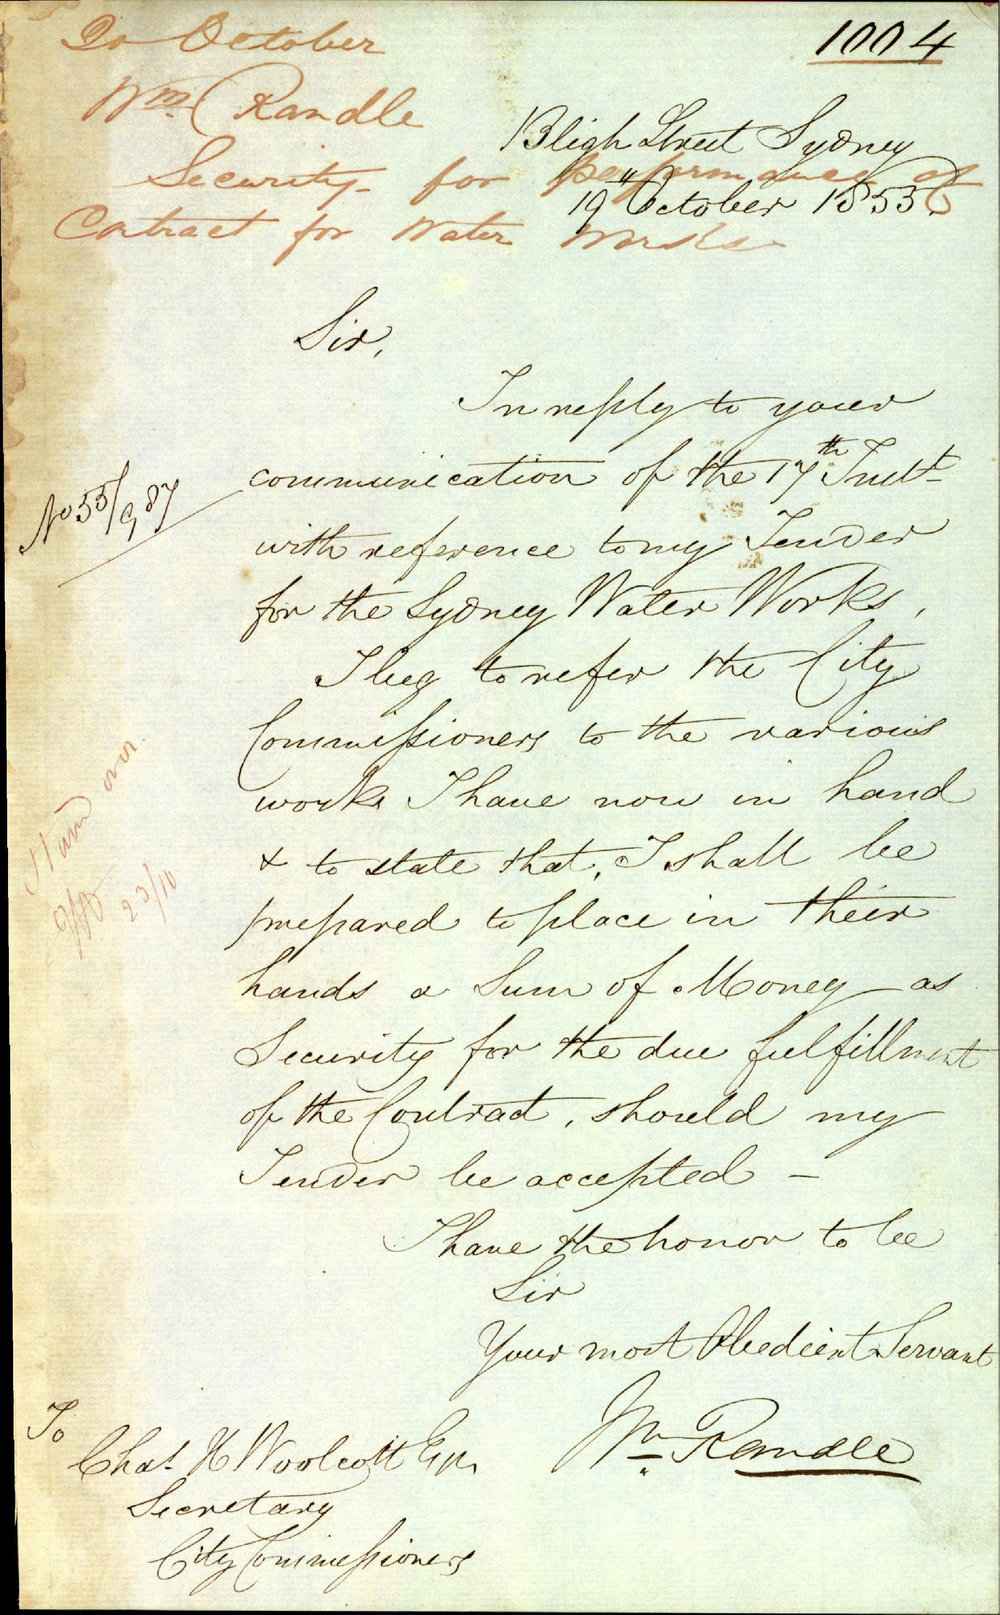 20 October
1004
Wm. Randle
Security for performance of
Contract for Water Works
Bligh Street Sydney
19" October 1855
Sir,
In reply to your
communication of the 17th Inst
No 55/987
with reference to my Tender
for the Sydney Water Works,
I beg to refer the City
Commissioners to the various
works I have now in hand
& to state that, I shall be
prepared to place in their
hands a Sum of Money as
Security for the due fulfillment
of the Contract, should my
Tender be accepted —
I have the honor to be
Sir
Your most Obedient Servant
Wm Randle
To
Chas. H Woolcott Esqr.
Secretary
City Commissioners
23/10